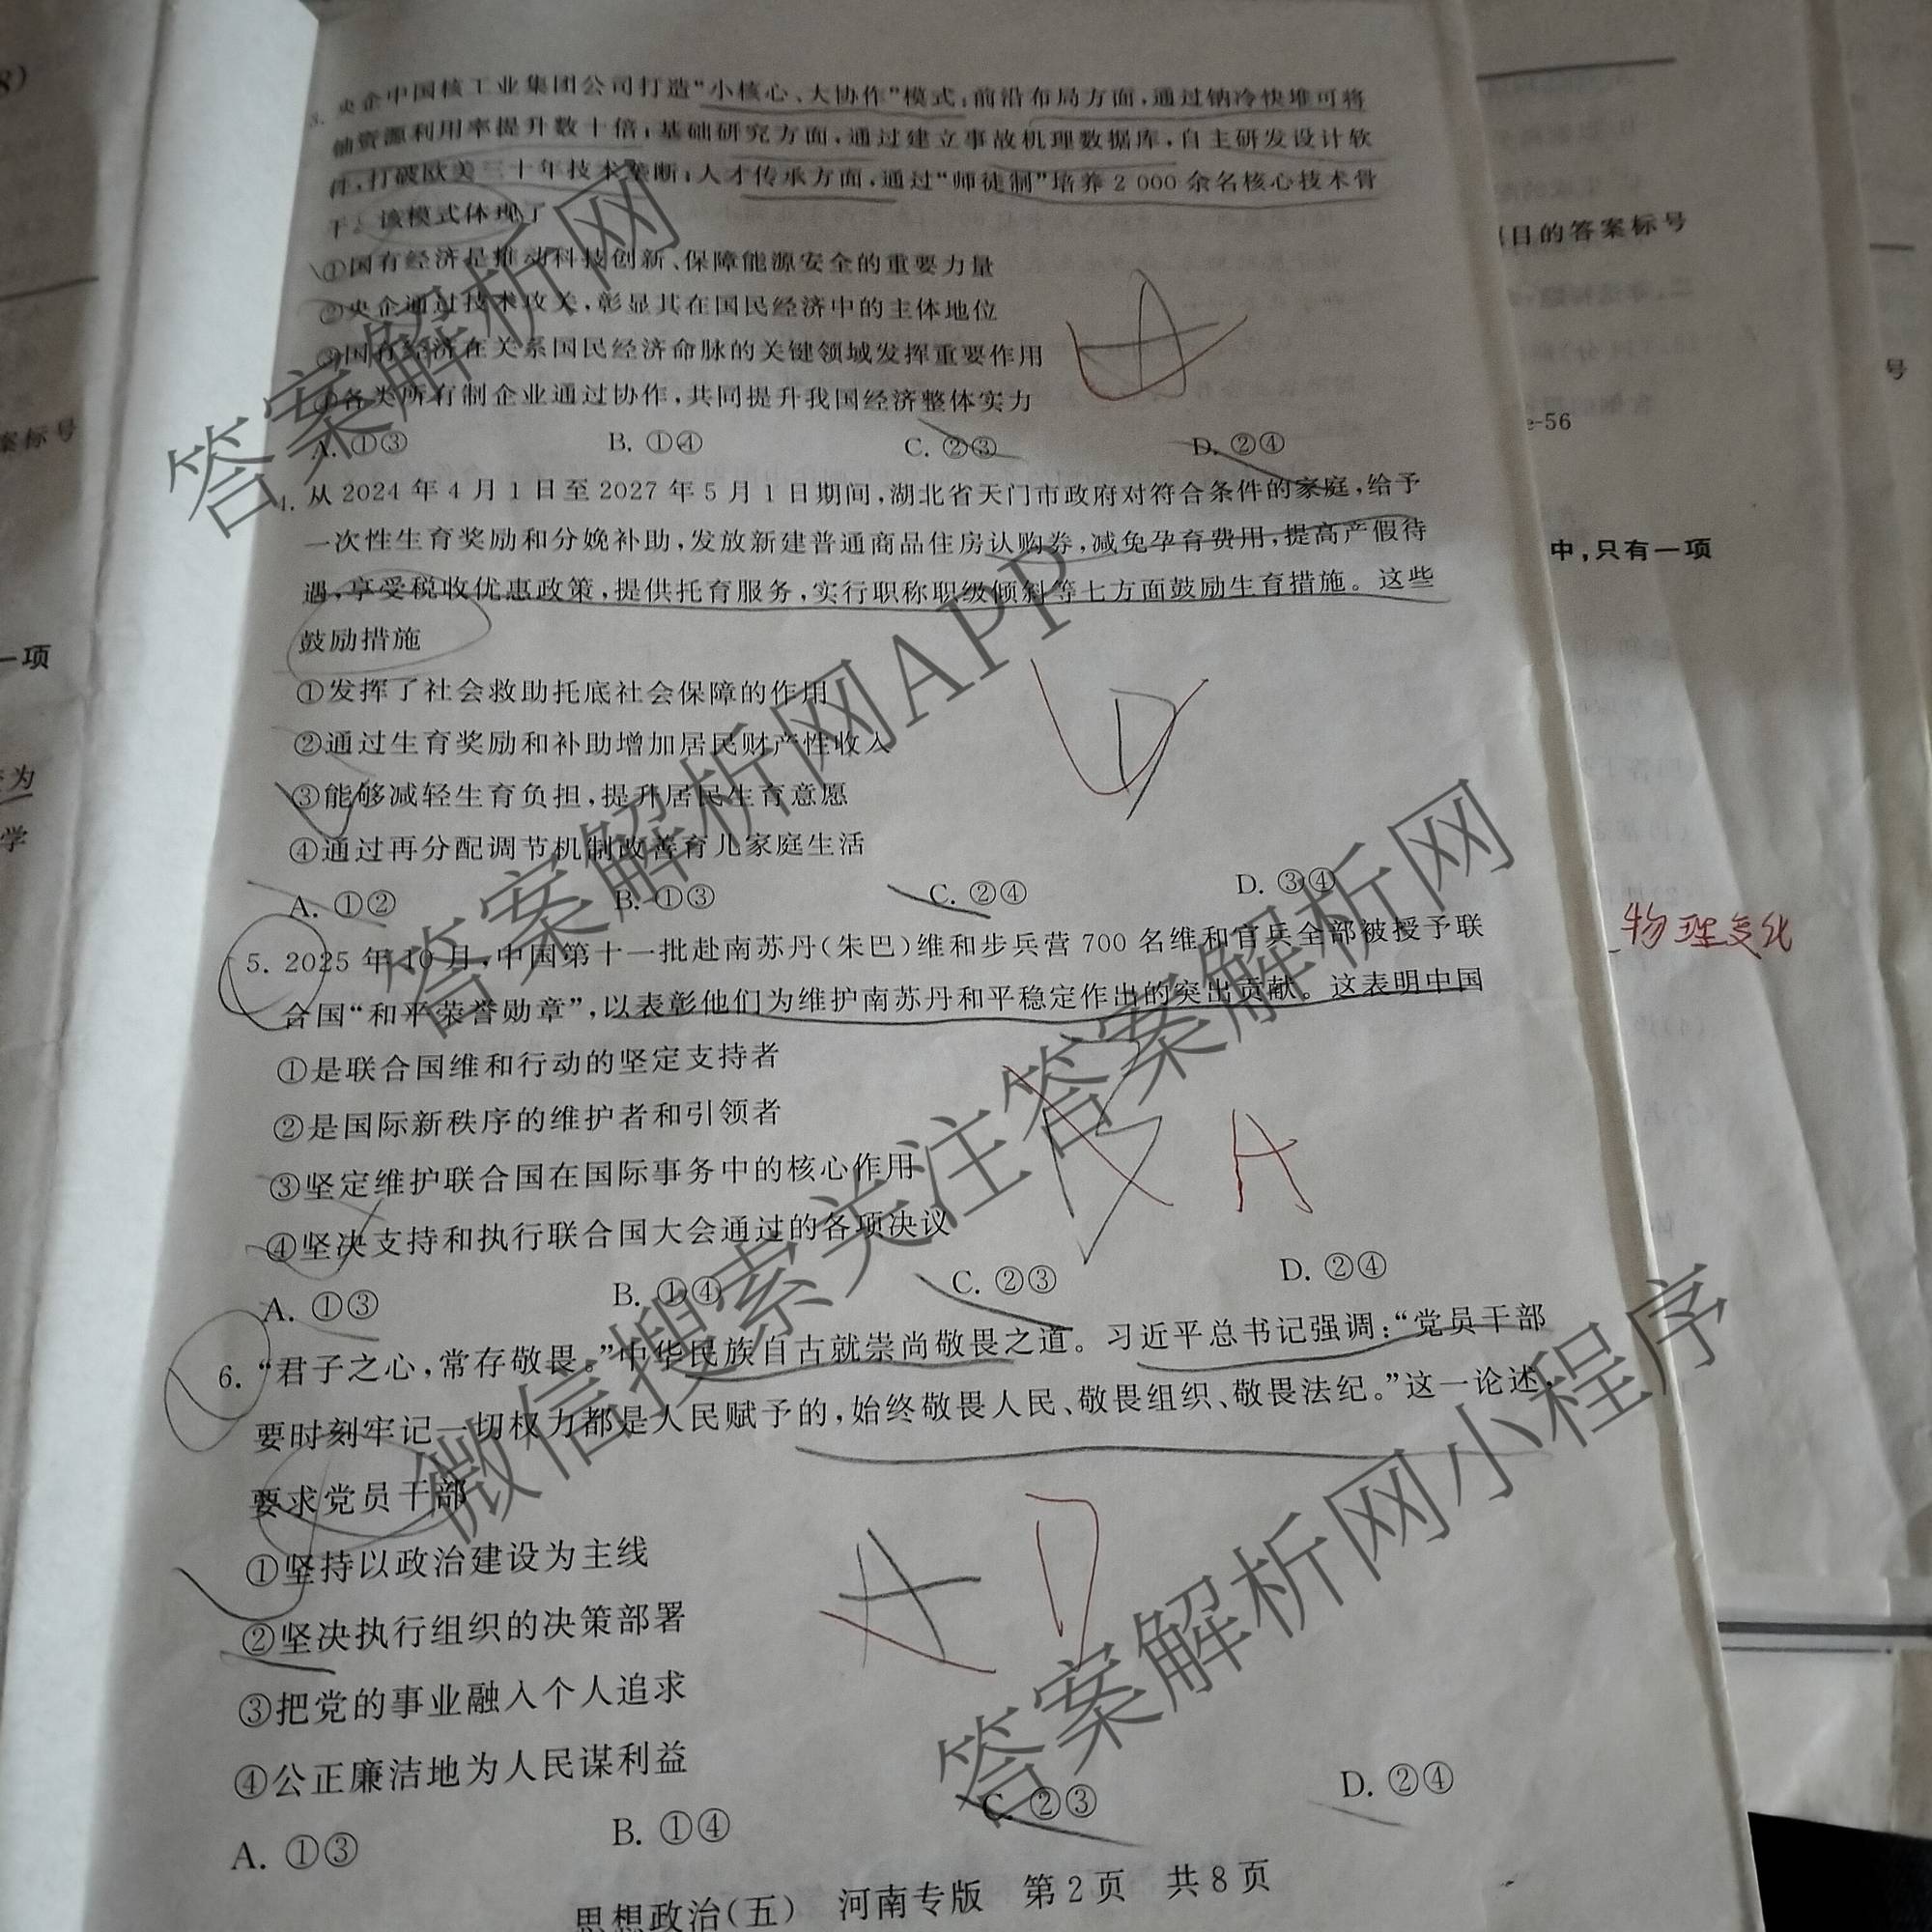 3. 央企中国核工业集团公司打造“小核心、大协作”模式:前沿布局方面,通过钠冷快堆可将
铀资源利用率提升数十倍;基础研究方面,通过建立事故机理数据库,自主研发设计软
件,打破欧美三十年技术垄断;人才传承方面,通过“师徒制”培养2 000余名核心技术骨
干。该模式体现了
①国有经济是推动科技创新、保障能源安全的重要力量
②央企通过技术攻关,彰显其在国民经济中的主体地位
③国有经济在关系国民经济命脉的关键领域发挥重要作用
④各类所有制企业通过协作,共同提升我国经济整体实力
A. ①③ B. ①④ C. ②③ D. ②④
4. 从2024年4月1日至2027年5月1日期间,湖北省天门市政府对符合条件的家庭,给予
一次性生育奖励和分娩补助,发放新建普通商品住房认购券,减免孕育费用,提高产假待
遇,享受税收优惠政策,提供托育服务,实行职称职级倾斜等七方面鼓励生育措施。这些
鼓励措施
①发挥了社会救助托底社会保障的作用
②通过生育奖励和补助增加居民财产性收入
③能够减轻生育负担,提升居民生育意愿
④通过再分配调节机制改善育儿家庭生活
A. ①② B. ①③ C. ②④ D. ③④
5. 2025年10月,中国第十一批赴南苏丹(朱巴)维和步兵营700名维和官兵全部被授予联
合国“和平荣誉勋章”,以表彰他们为维护南苏丹和平稳定作出的突出贡献。这表明中国
①是联合国维和行动的坚定支持者
②是国际新秩序的维护者和引领者
③坚定维护联合国在国际事务中的核心作用
④坚决支持和执行联合国大会通过的各项决议
A
A. ①③ B. ①④ C. ②③ D. ②④
6. “君子之心,常存敬畏。”中华民族自古就崇尚敬畏之道。习近平总书记强调:“党员干部
要时刻牢记一切权力都是人民赋予的,始终敬畏人民、敬畏组织、敬畏法纪。”这一论述,
要求党员干部
①坚持以政治建设为主线
②坚决执行组织的决策部署
③把党的事业融入个人追求
④公正廉洁地为人民谋利益
A D
A. ①③ B. ①④ C. ②③ D. ②④
思想政治(五) 河南专版 第2页 共8页
题目的答案标号
e-56
中,只有一项
物理变化
号
案标号
一项
为
学
8)
答案解析网
答案解析网APP
微信搜索关注答案解析网
答案解析网小程序